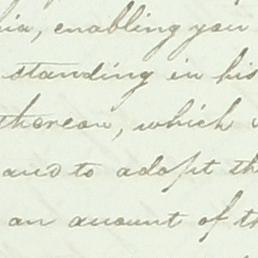 ia, enabling you
standing in his
thereon, which
and to adopt th
an amount of th